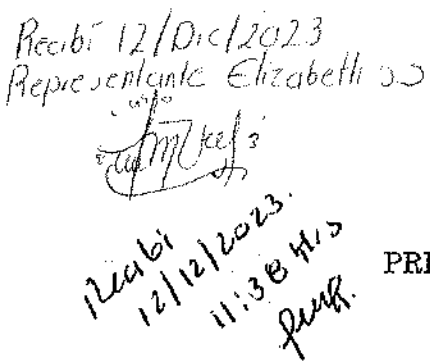 Recibí 12/Dic/2023
Representante Elizabeth
Recibi
12/12/2023.
11:38 Hrs
PRI